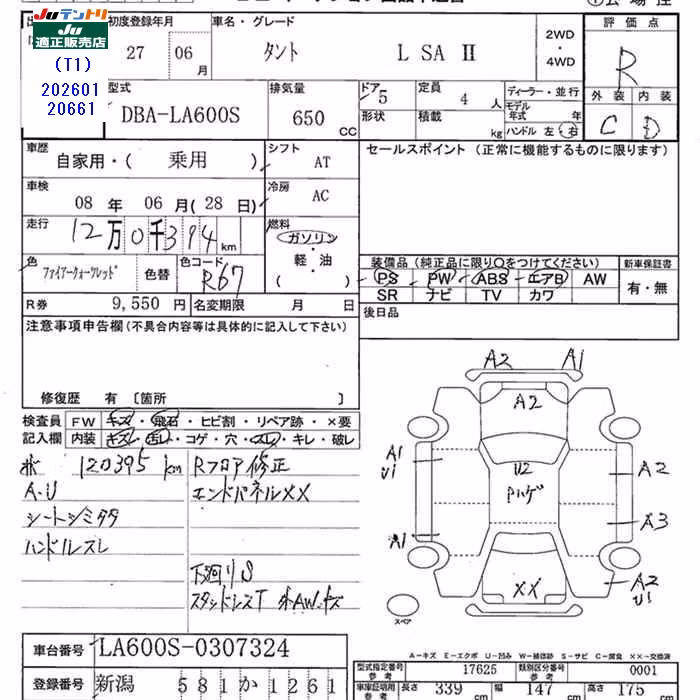 JUテントリ
JU適正販売店
(T1)
202601
20661
初度登録年月
27 06月
車名・グレード
タント L SA Ⅱ
2WD
・
4WD
評価点
R
型式
DBA-LA600S
排気量
650 CC
ドア 5
形状
定員 4 人
積載 kg
ディーラー・並行
モデル年式 年
ハンドル 左・右
外装 内装
C D
車歴
自家用・( 乗用 )
シフト AT
セールスポイント (正常に機能するものに限ります)
車検
08 年 06 月 ( 28 日)
冷房 AC
走行
12万0千394 km
燃料
ガソリン
軽・油
( )
色
ファイアークォーツレッド
色替
色コード
R67
装備品 (純正品に限り○をつけてください)
PS PW ABS エアB AW
SR ナビ TV カワ
新車保証書
有・無
R券 9,550 円
名変期限 月 日
後日品
注意事項申告欄 (不具合内容等は具体的に記入して下さい)
修復歴 有 〔箇所 〕
検査員
記入欄
FW キズ・飛石・ヒビ割・リペア跡・×要
内装 キズ・汚レ・コゲ・穴・スレ・キレ・破レ
120395 km
A・U
シートシミ
ハンドルスレ
Rフロア修正
エンドパネルXX
下廻りS
スタッドレスT 外AWキズ
A2 A1
A2
A1
U1
U2
Pハゲ
A2
A1
A3
XX
A2
U1
スペア
A－キズ E－エクボ U－凹み W－補修跡 S－サビ C－腐食 XX－交換済
車台番号 LA600S-0307324
登録番号 新潟 581 か 1261
型式指定番号
参考
17625
類別区分番号
参考
0001
車庫証明用
参考
長さ 339 cm
幅 147 cm
高さ 175 cm